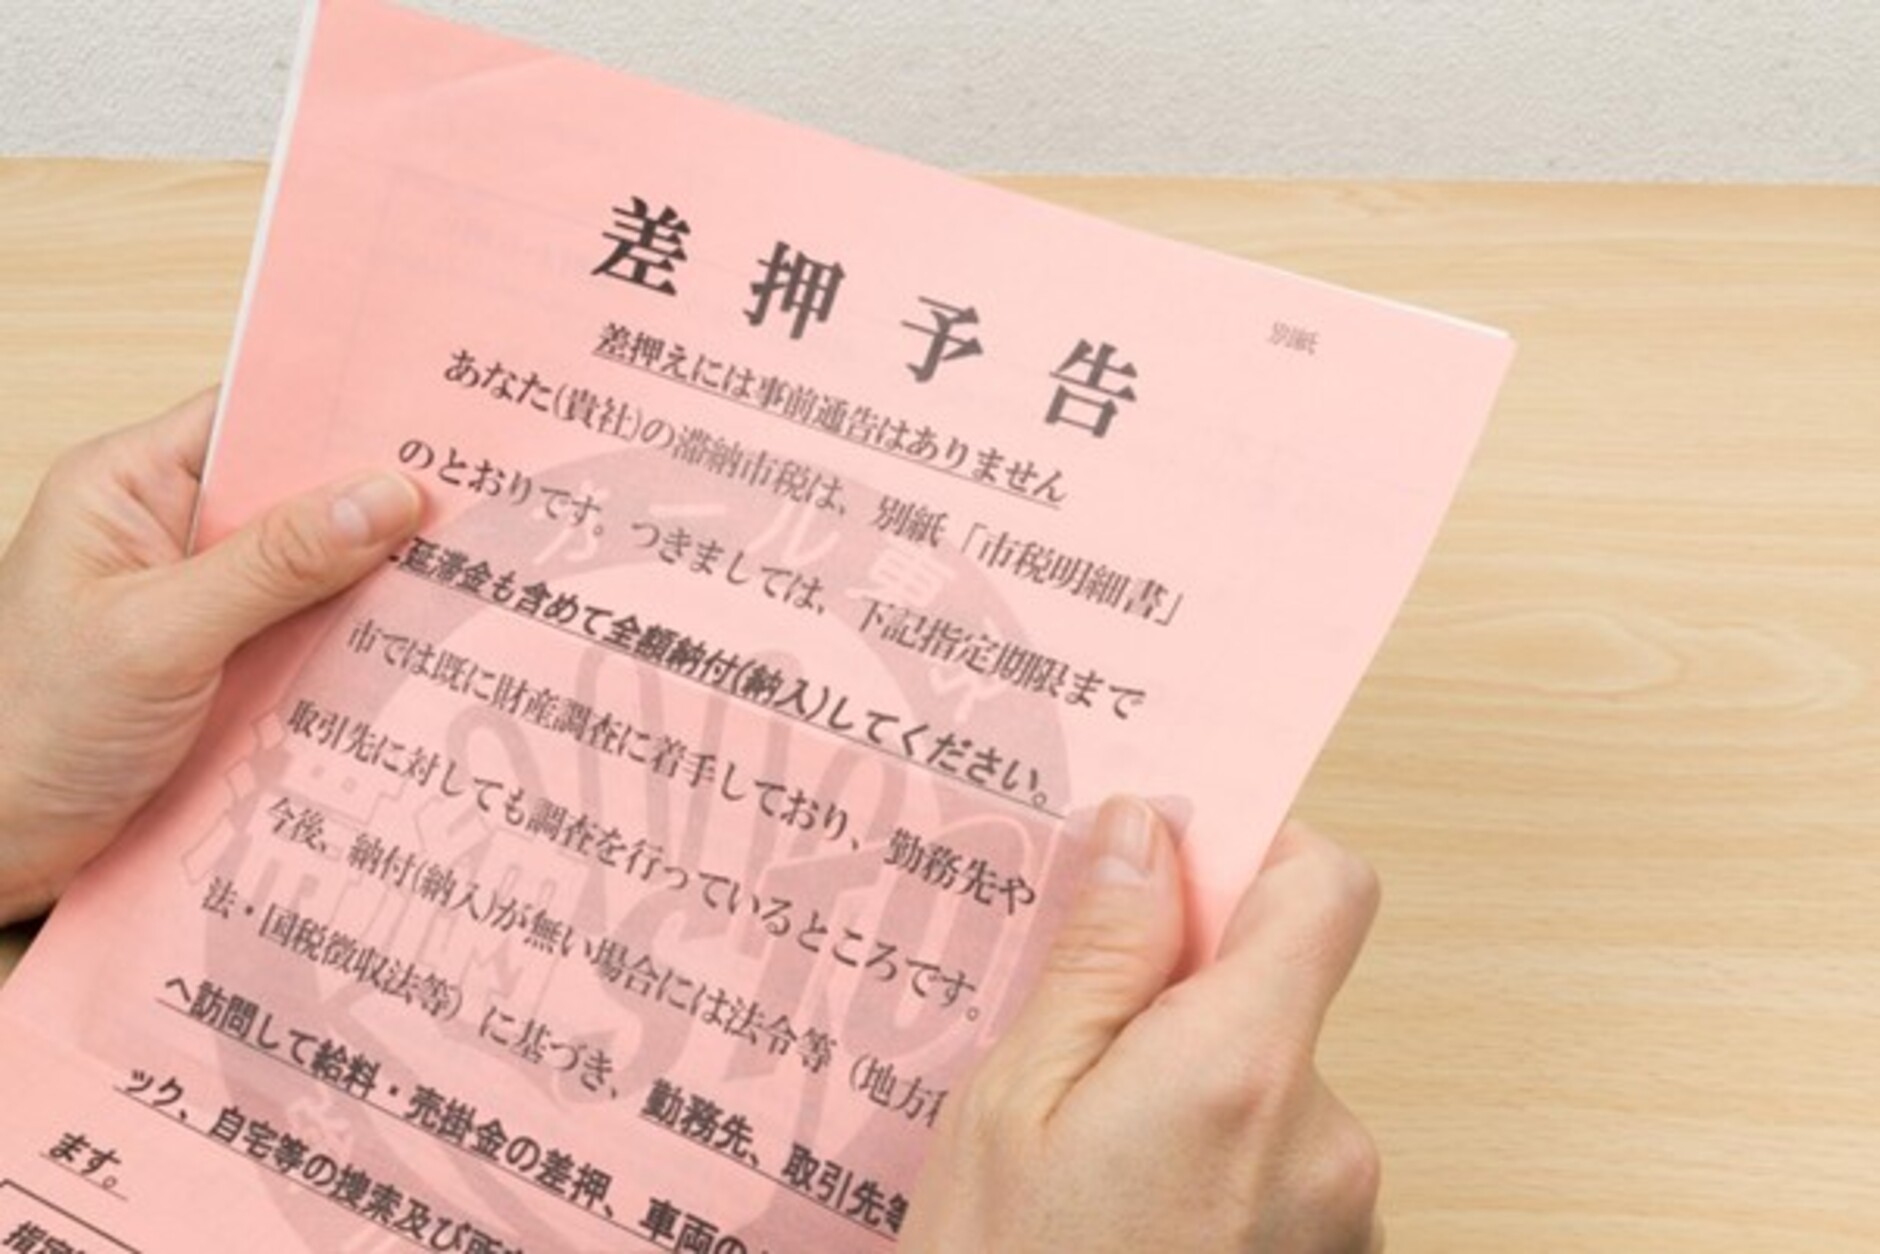 別紙
差押予告
差押えには事前通告はありません
あなた(貴社)の滞納市税は、別紙「市税明細書」
のとおりです。つきましては、下記指定期限まで
延滞金も含めて全額納付(納入)してください。
市では既に財産調査に着手しており、勤務先や
取引先に対しても調査を行っているところです。
今後、納付(納入)が無い場合には法令等（地方
法・国税徴収法等）に基づき、勤務先、取引先等
へ訪問して給料・売掛金の差押、車両の
ック、自宅等の捜索及び
ます。
指定